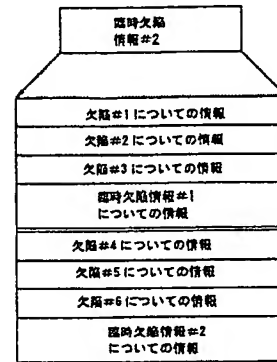 臨時欠陥
情報#2
欠陥#1についての情報
欠陥#2についての情報
欠陥#3についての情報
臨時欠陥情報#1
についての情報
欠陥#4についての情報
欠陥#5についての情報
欠陥#6についての情報
臨時欠陥情報#2
についての情報